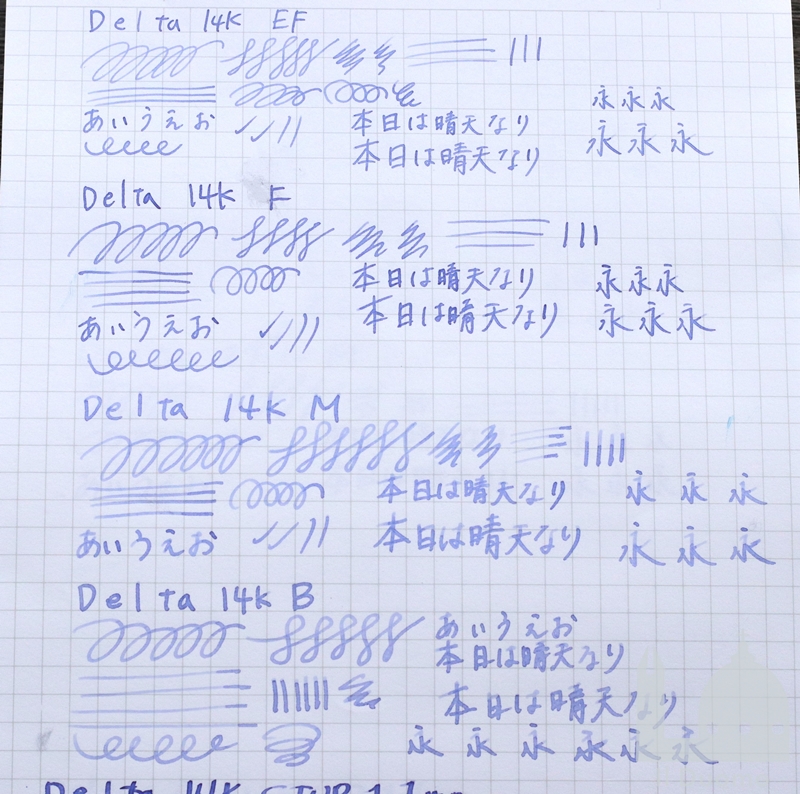 Delta 14K EF
永永永
あいうえお 本日は晴天なり
本日は晴天なり 永永永
Delta 14K F
本日は晴天なり 永永永
あいうえお 本日は晴天なり 永永永
Delta 14K M
本日は晴天なり 永永永
あいうえお 本日は晴天なり 永永永
Delta 14K B
あいうえお
本日は晴天なり
本日は晴天なり
永永永永永永
Delta 14K STUB 1.1mm